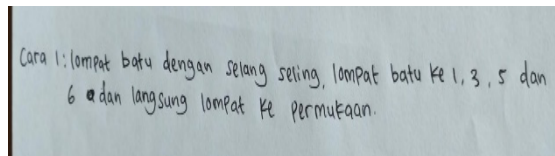 Cara 1: lompat batu dengan selang seling, lompat batu ke 1, 3, 5 dan
6 dan langsung lompat ke permukaan.